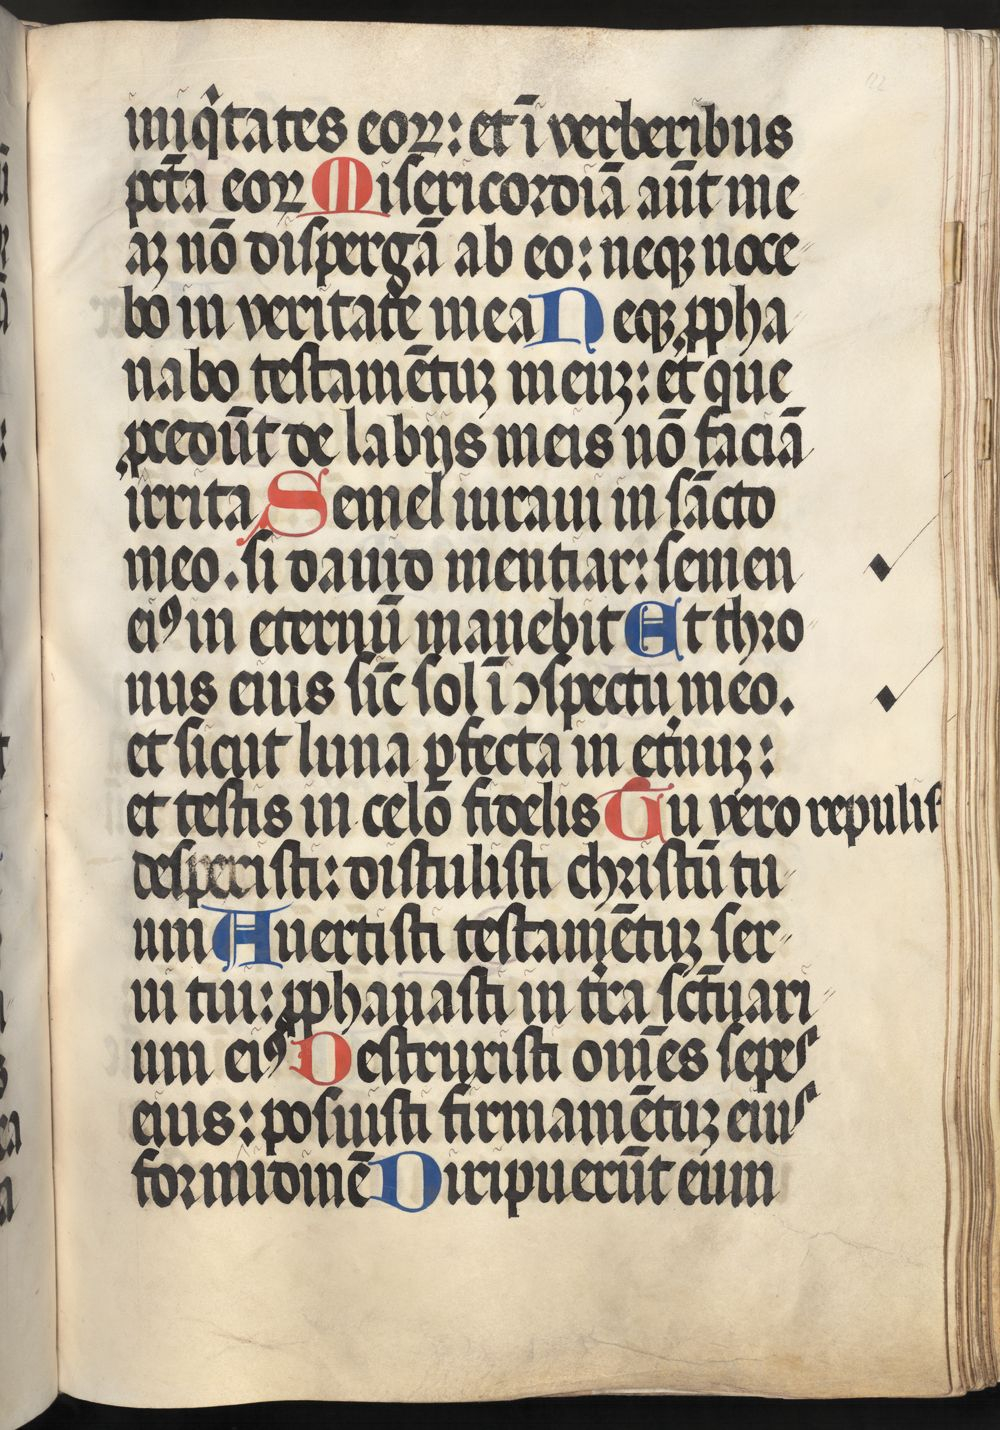 iniq̑tates eoꝝ: et ī verberibus
pct̄a eoꝝ Misericordiā aūt me
aꝫ nō dispergā ab eo: neqꝫ noce
bo in veritate mea Neqꝫ ꝓpha
nabo testamētuꝫ meuꝫ: et que
ꝓcedūt de labijs meis nō faciā
irrita Semel iuraui in sācto
meo. si dauid mentiar: semen
eiꝰ in eternū manebit Et thro
nus eius sic̄ sol ī ↄspectu meo.
et sicut luna ꝑfecta in et̄nuꝫ:
et testis in celo fidelis Tu vero repulis
desperisti: distulisti christū tu
um Auertisti testamētuꝫ ser
ui tui: ꝓphanasti in tr̄a sct̄uari
um eiꝰ Destruxisti om̄es sepes
eius: posuisti firmamētuꝫ eius
formidinē Diripuerūt eum